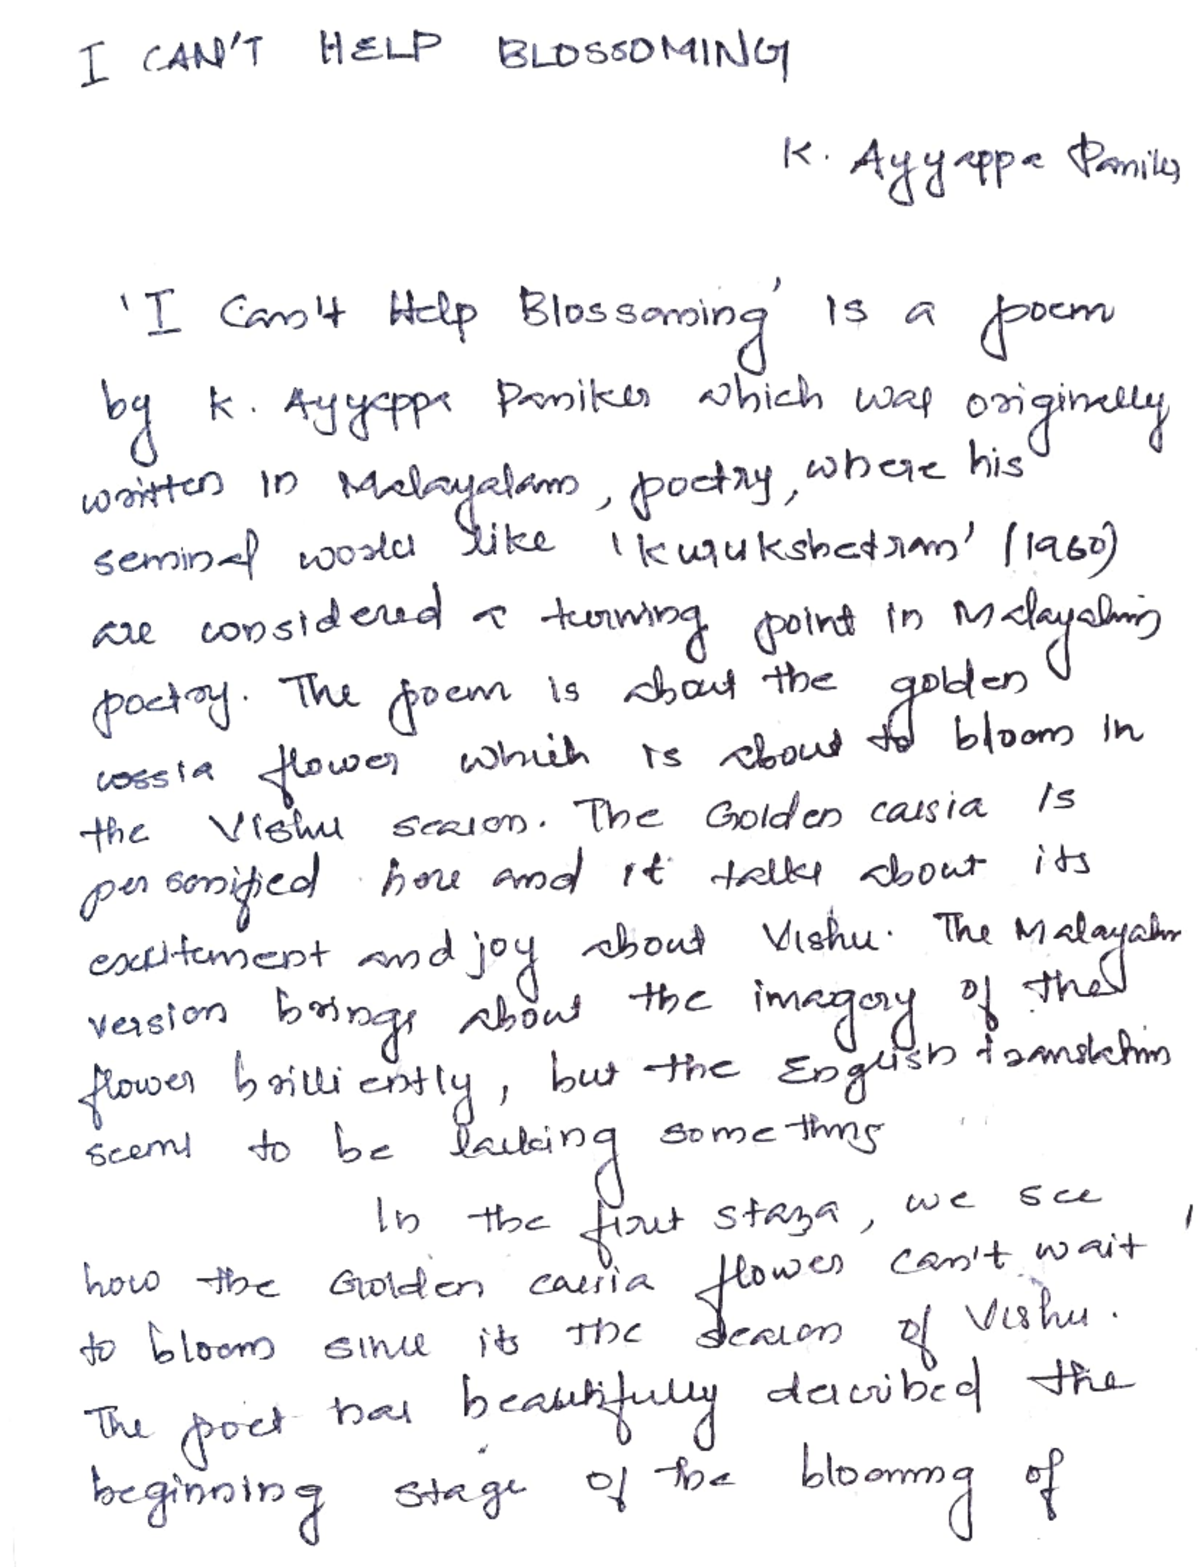 I CAN'T HELP BLOSSOMING
K. Ayyappa Paniker
'I Can't Help Blossoming' is a poem
by K. Ayyappa Paniker which was originally
written in Malayalam, poetry, where his
seminal world like 'Kurukshetram' (1960)
are considered a turning point in Malayalam
poetry. The poem is about the golden
cossia flower which is about to bloom in
the Vishu season. The Golden cassia is
personified here and it talks about its
excitement and joy about Vishu. The Malayalam
version brings about the imagery of the
flower brilliently, but the English translation
seems to be lacking something
In the first staza, we see
how the Golden cassia flower can't wait
to bloom since its the season of Vishu.
The poet has beautifully described the
beginning stage of the blooming of